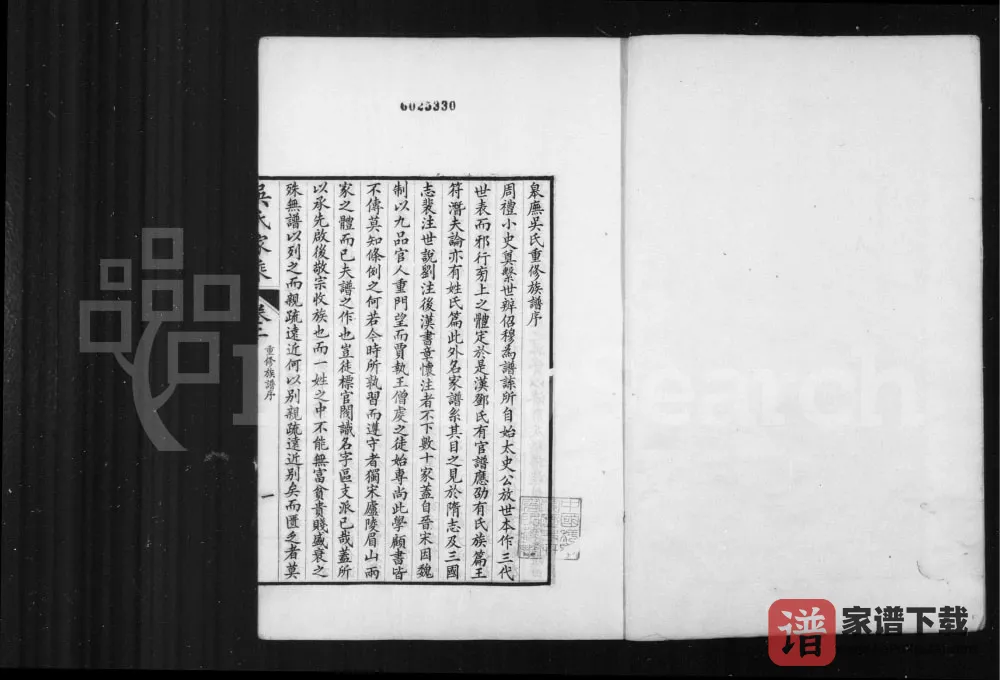 6025330
皐廡吳氏重修族譜序
周禮小史奠繫世辨佋穆為譜諜所自始太史公放世本作三代
世表而邪行㫄上之體定於是漢鄧氏有官譜應劭有氏族篇王
符潛夫論亦有姓氏篇此外名家譜系其目之見於隋志及三國
志裴注世說劉注後漢書章懷注者不下數十家蓋自晉宋因魏
制以九品官人重門望而賈執王僧虔之徒始專尚此學顧書皆
不傳莫知條例之何若今時所孰習而遵守者獨宋廬陵眉山兩
家之體而已夫譜之作也豈徒標官閥識名字區支派已哉蓋所
以承先啟後敬宗收族也而一姓之中不能無富貧貴賤盛衰之
殊無譜以列之而親疏遠近何以別親疏遠近別矣而匱乏者莫
吳氏家乘
卷二
重修族譜序
一
谱
家谱下载